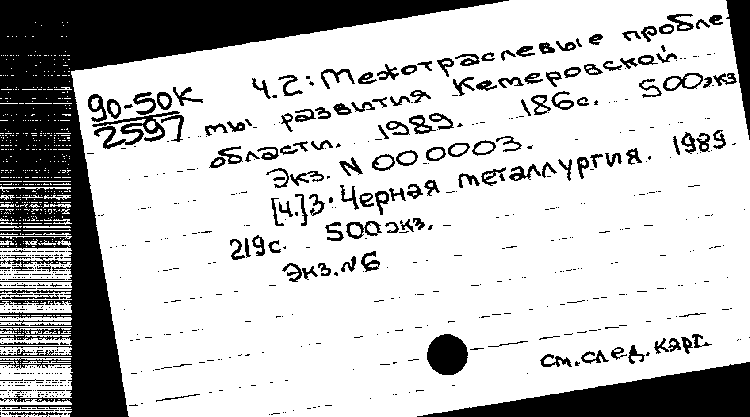 90-50К
2597
Ч.2: Межотраслевые пробле-
мы развития Кемеровской
области. 1989. 186с. 500экз
Экз. N 000003.
[Ч.]3. Черная металлургия. 1989.
219с. 500экз.
Экз. №6
см. след. карт.